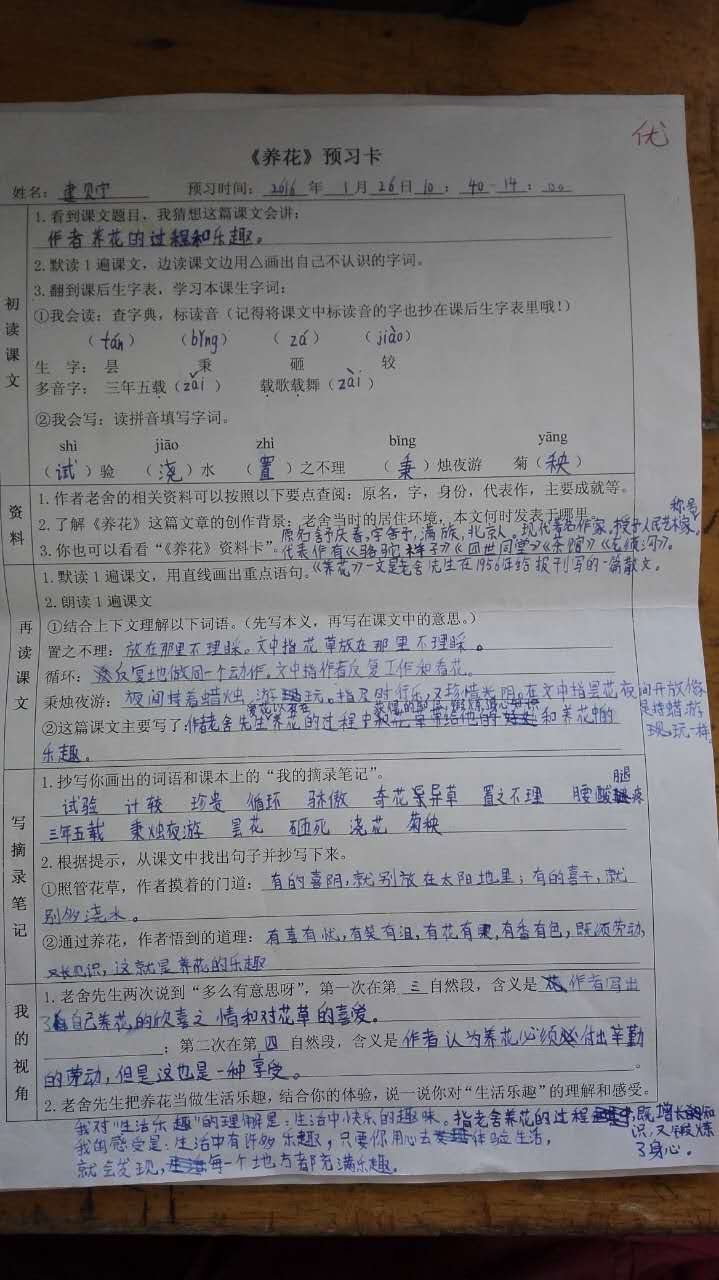 优
《养花》预习卡
姓名: 预习时间: 2016 年 1 月 26 日 10 : 40 - 14 : 00
初读课文
1.看到课文题目，我猜想这篇课文会讲:
作者养花的过程和乐趣。
2.默读1遍课文，边读课文边用△画出自己不认识的字词。
3.翻到课后生字表，学习本课生字词:
①我会读: 查字典，标读音（记得将课文中标读音的字也抄在课后生字表里哦！）
（tán） （bǐng） （zá） （jiào）
生 字: 昙 秉 砸 较
多音字: 三年五载（zǎi） 载歌载舞（zài）
②我会写: 读拼音填写字词。
shì jiāo zhì bǐng yāng
（试）验 （浇）水 （置）之不理 （秉）烛夜游 菊（秧）
资料
1.作者老舍的相关资料可以按照以下要点查阅: 原名，字，身份，代表作，主要成就等。
2.了解《养花》这篇文章的创作背景: 老舍当时的居住环境，本文何时发表于哪里。
原名舒庆春,字舍予,满族,北京人。现代著名作家,授予人民艺术家称号。
3.你也可以看看“《养花》资料卡”。代表作有《骆驼祥子》《四世同堂》《茶馆》《龙须沟》。
《养花》一文是老舍先生在1956年给报刊写的一篇散文。
再读课文
1.默读1遍课文，用直线画出重点语句。
2.朗读1遍课文
①结合上下文理解以下词语。（先写本义，再写在课文中的意思。）
置之不理: 放在那里不理睬。文中指花草放在那里不理睬。
循环: 反复地做同一个动作。文中指作者反复工作和看花。
秉烛夜游: 夜间持着蜡烛游玩。指及时行乐,又珍惜光阴。在文中指昙花夜间开放像是持蜡游玩一样
②这篇课文主要写了: 作者老舍先生养花的过程中 花草带给他的 和养花中的
乐趣。
写摘录笔记
1.抄写你画出的词语和课本上的“我的摘录笔记”。
试验 计较 珍贵 循环 骄傲 奇花异草 置之不理 腰酸腿疼
三年五载 秉烛夜游 昙花 砸死 浇花 菊秧
2.根据提示，从课文中找出句子并抄写下来。
①照管花草，作者摸着的门道: 有的喜阴,就别放在太阳地里;有的喜干,就
别多浇水。
②通过养花，作者悟到的道理: 有喜有忧,有笑有泪,有花有果,有香有色,既须劳动,
又长见识,这就是养花的乐趣
我的视角
1.老舍先生两次说到“多么有意思呀”，第一次在第 三 自然段，含义是 作者写出
了自己养花的欣喜之情和对花草的喜爱。
; 第二次在第 四 自然段，含义是 作者认为养花必须付出辛勤
的劳动,但是这也是一种享受。
2.老舍先生把养花当做生活乐趣，结合你的体验，说一说你对“生活乐趣”的理解和感受。
我对“生活乐趣”的理解是:生活中快乐的趣味。指老舍养花的过程 既增长的知识,又锻炼了身心。
我的感受是:生活中有许多乐趣,只要你用心去体验生活,
就会发现,每一个地方都充满乐趣。